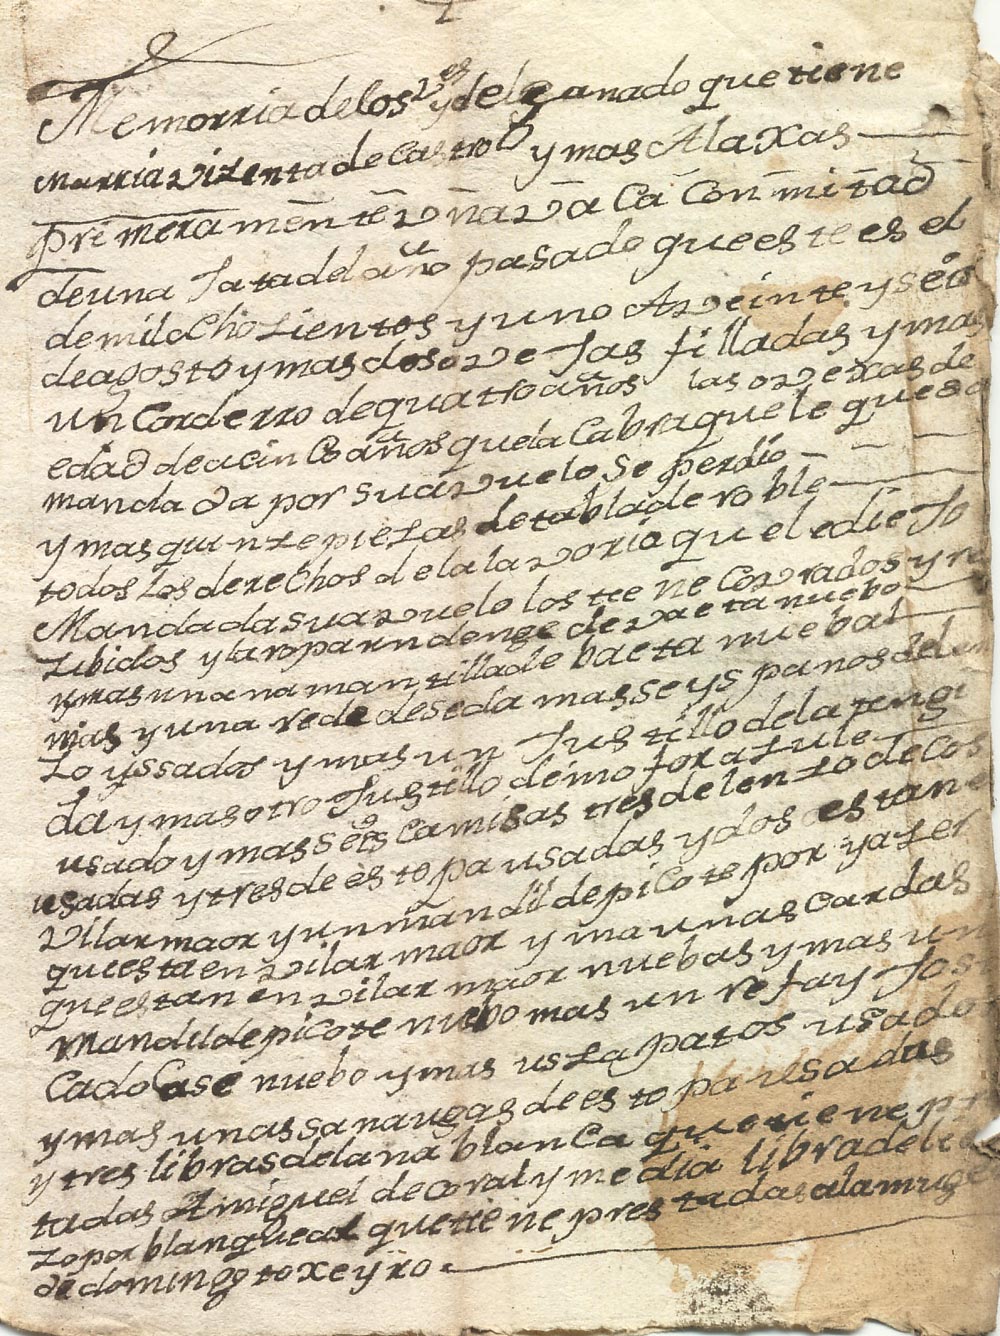 Memorria de los Res y del ganado que tiene
Marria Vizenta de Castro y mas Alaxas
primera mente Una Vaca Con mitad
de una Jata del año pasado que este es el
de mil ochozientos y uno A Veinte y seis
de agosto y mas dos oveJas filladas y mas
un Corderro de quatro años las oVexas de
edad de acinCo años que la Cabra que le quedo
mandada por su avuelo se perdio
y mas quinze piezas de tabla de roble
todos Los derechos de la lavoria que el edieJo
Mandada su avuelo los tiene CoVrados y re
zibidos y la ropa denge de Vaeta nuebo
y mas una mantilla de baeta nueba
mas y una rede de seda mas seys panos de len
zo yssados y mas un Justillo de la
da y mas otro Justillo de mofora
usado y mas seis Camisas tres de lenzo de Cos
usadas y tres de estopa usadas y dos estan en
Vilarmaor y un mandil de picote por yazer
que esta en Vilar maor y ma unas Cardas
que estan en Vilar maor nuebas y mas un
mandil de picote nuebo mas un refay Jos
Cado Case nuebo y mas us zapatos usado
y mas unas sanaugas de estopa usadas
y tres libras de lana blanCa que tiene
tadas A miguel de Coral y media libra de
zo por blanquear que tiene prestadas a la muge
de domingo toxeyro